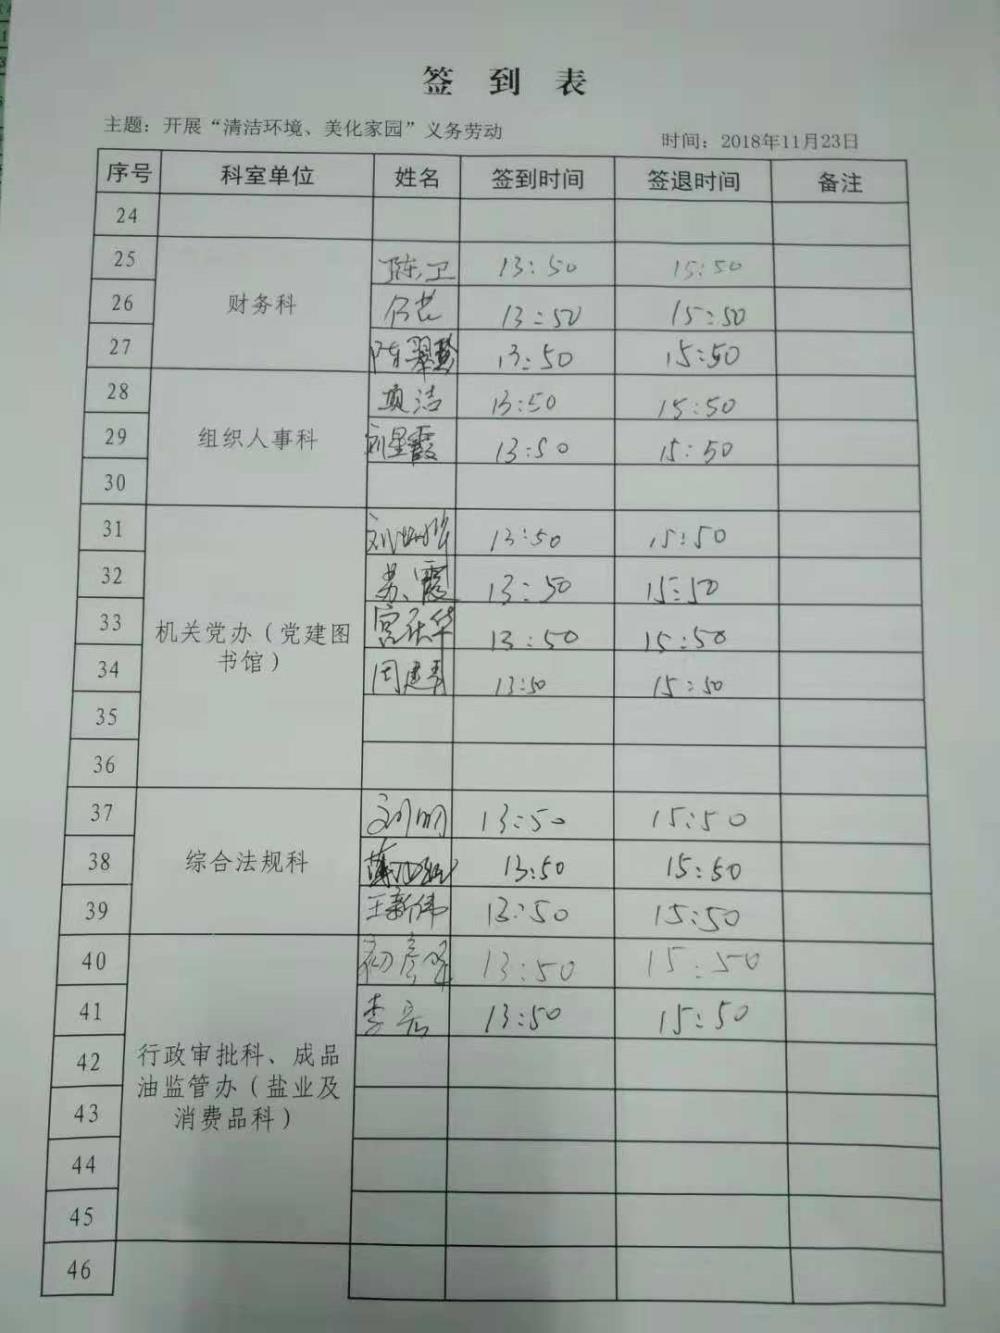 签到表
主题：开展“清洁环境、美化家园”义务劳动
时间：2018年11月23日
序号 科室单位 姓名 签到时间 签退时间 备注
24
25 陈卫 13:50 15:50
财务科
26 13:50 15:50
27 陈翠 13:50 15:50
28 项洁 13:50 15:50
29 组织人事科 刘星霞 13:50 15:50
30
31 刘 13:50 15:50
32 苏霞 13:50 15:50
33 宫庆华 13:50 15:50
机关党办（党建图
书馆）
34 周建 13:50 15:50
35
36
37 刘明 13:50 15:50
38 综合法规科 13:50 15:50
39 王新伟 13:50 15:50
40 初彦 13:50 15:50
41 李 13:50 15:50
42
行政审批科、成品
油监管办（盐业及
消费品科）
43
44
45
46